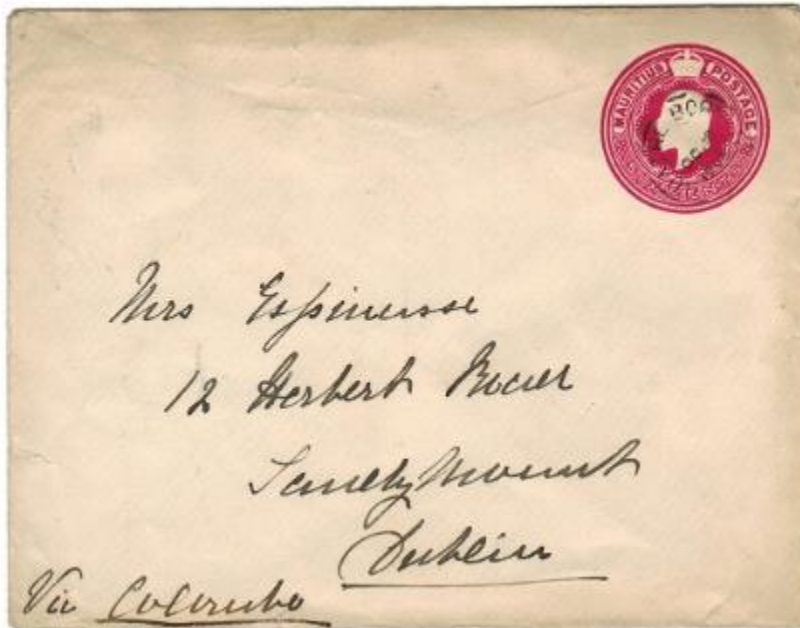 MAURITIUS POSTAGE
Mrs Espinasse
12 Herbert Road
Sandymount
Dublin
Via Colombo